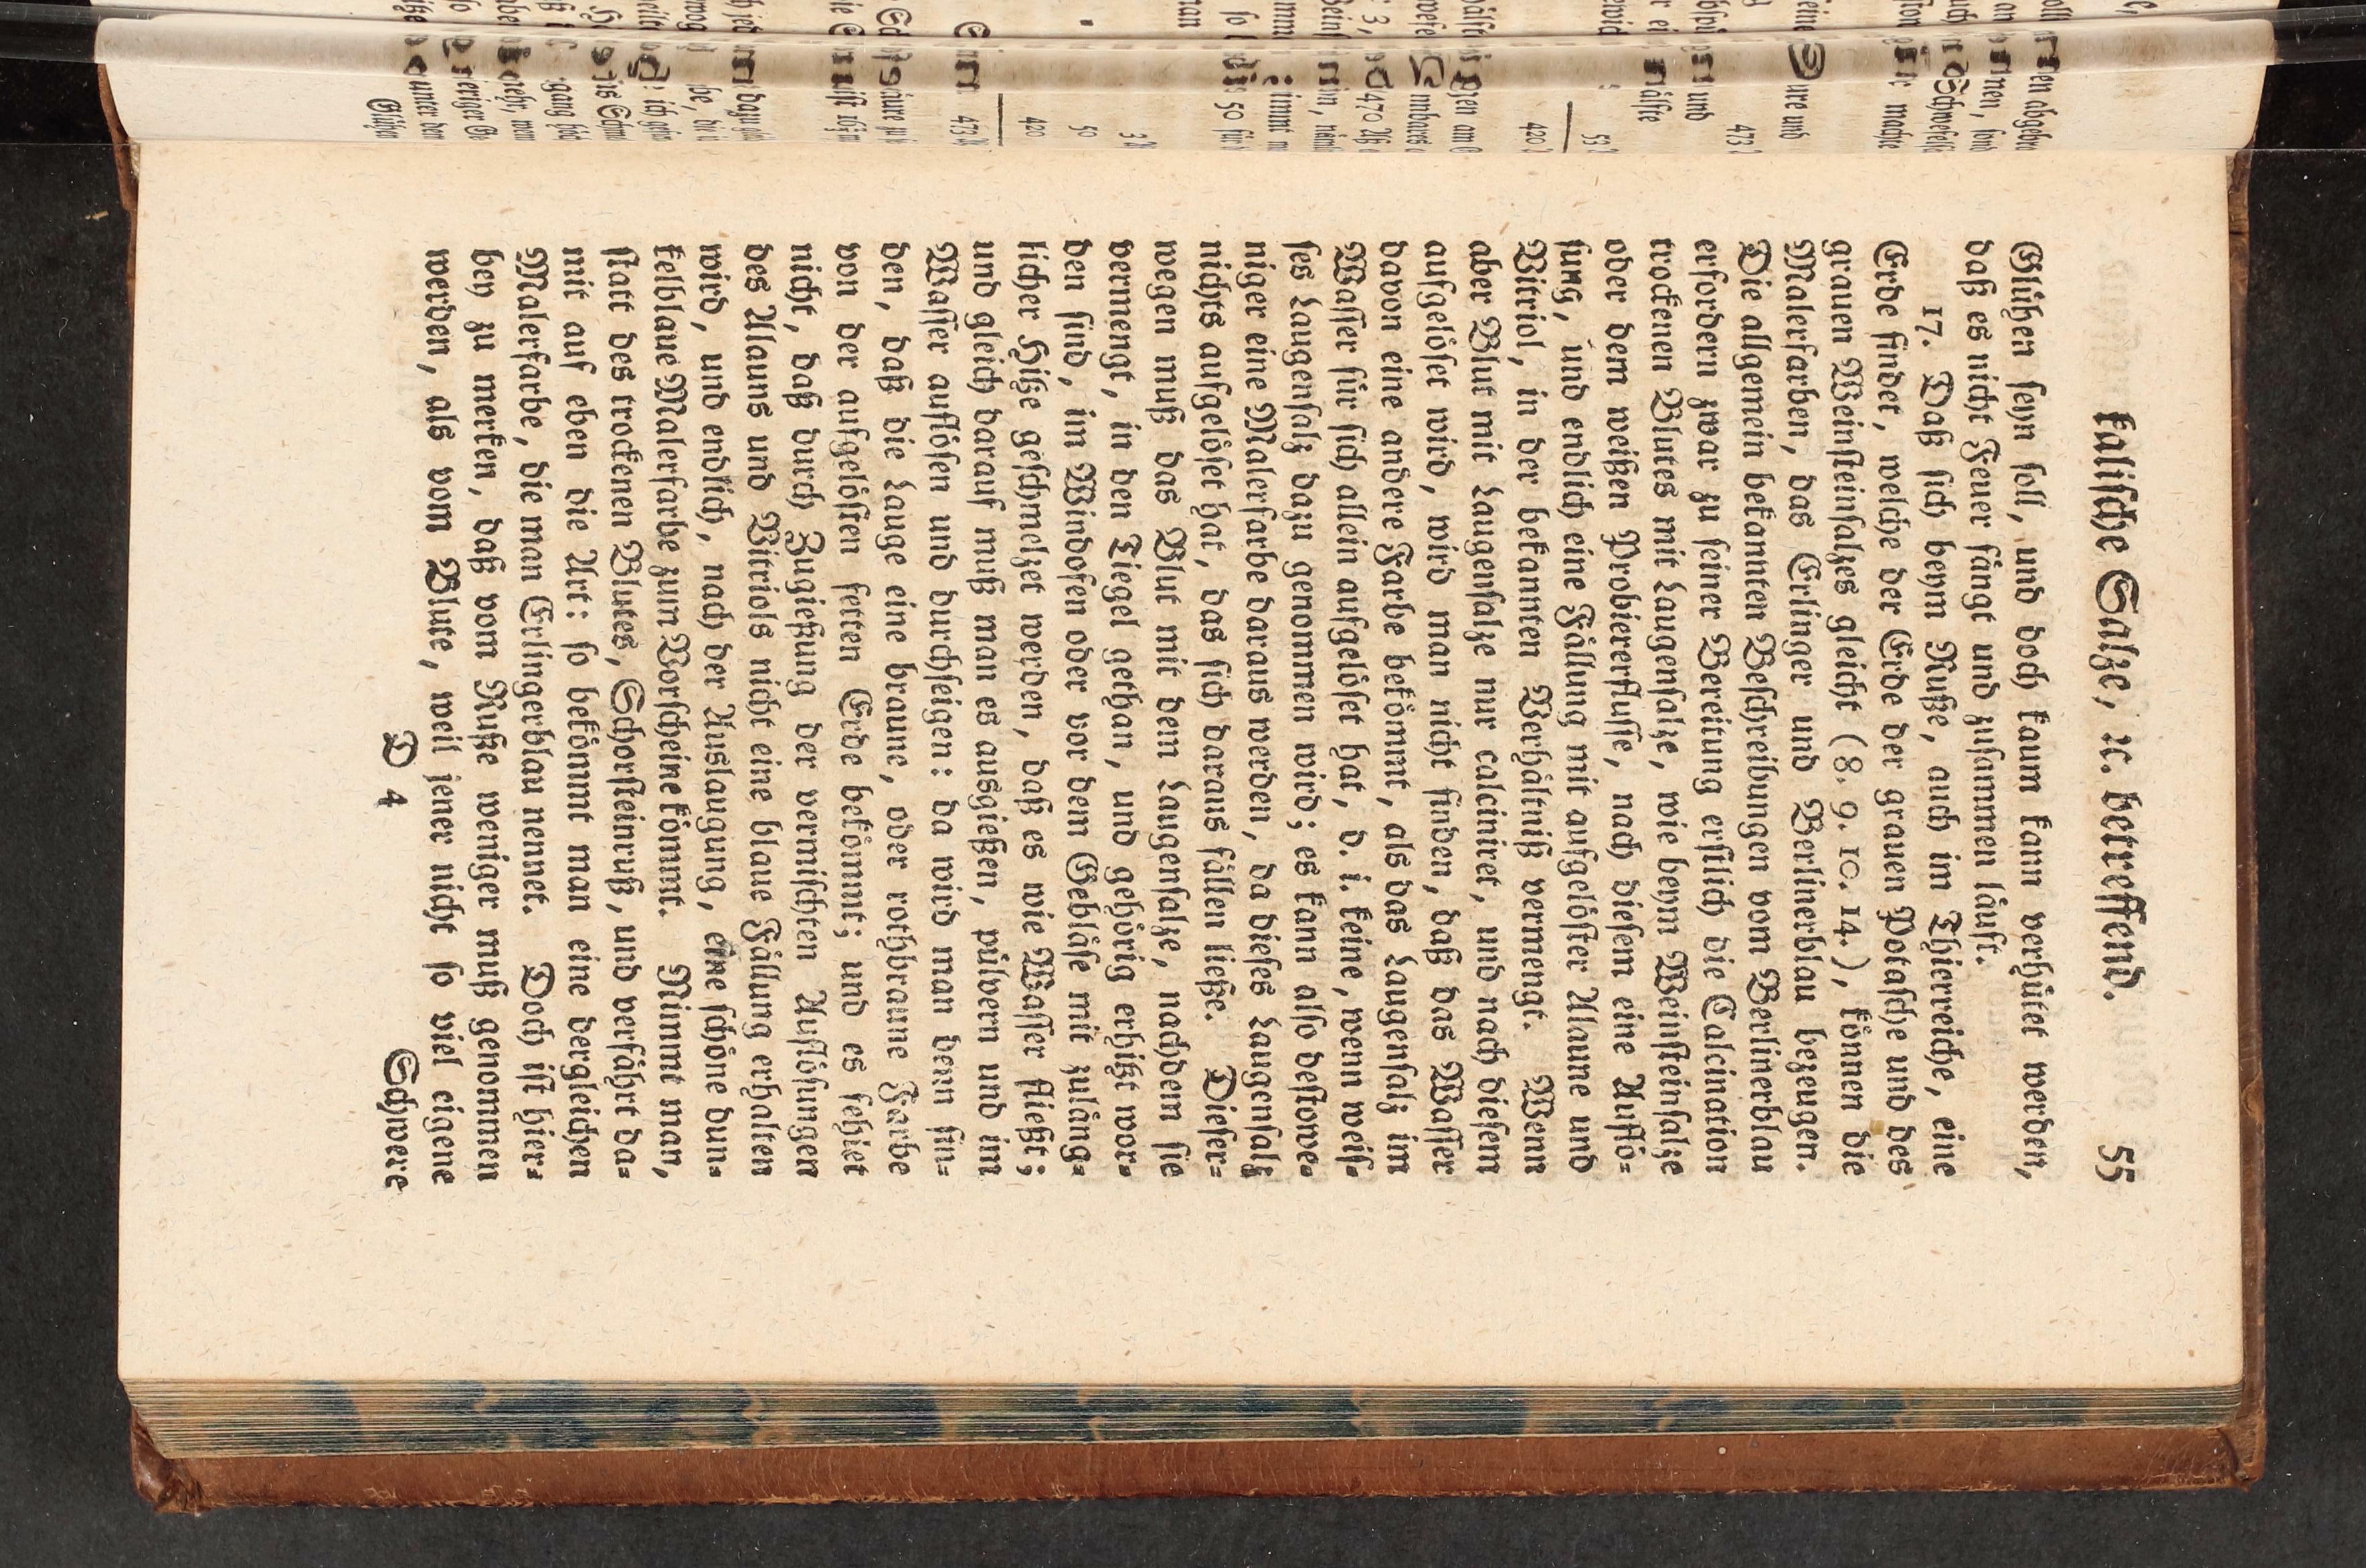 kalische Salze, ꝛc. betreffend. 55
Glühen seyn soll, und doch kaum kann verhütet werden,
daß es nicht Feuer fängt und zusammen läuft.
17. Daß sich beym Ruße, auch im Thierreiche, eine
Erde findet, welche der Erde der grauen Potasche und des
grauen Weinsteinsalzes gleicht (8. 9. 10. 14.), können die
Malerfarben, das Erlinger und Berlinerblau bezeugen.
Die allgemein bekannten Beschreibungen vom Berlinerblau
erfordern zwar zu seiner Bereitung erstlich die Calcination
trockenen Blutes mit Laugensalze, wie beym Weinsteinsalze
oder dem weißen Probiererflusse, nach diesem eine Auflö⸗
sung, und endlich eine Fällung mit aufgelöster Alaune und
Vitriol, in der bekannten Verhältniß vermengt. Wenn
aber Blut mit Laugensalze nur calciniret, und nach diesem
aufgelöset wird, wird man nicht finden, daß das Wasser
davon eine andere Farbe bekömmt, als das Laugensalz im
Wasser für sich allein aufgelöset hat, d. i. keine, wenn weis⸗
ses Laugensalz dazu genommen wird; es kann also destowe⸗
niger eine Malerfarbe daraus werden, da dieses Laugensalz
nichts aufgelöset hat, das sich daraus fällen ließe. Dieser⸗
wegen muß das Blut mit dem Laugensalze, nachdem sie
vermengt, in den Tiegel gethan, und gehörig erhitzt wor⸗
den sind, im Windofen oder vor dem Gebläse mit zuläng⸗
licher Hitze geschmelzet werden, daß es wie Wasser fließt;
und gleich darauf muß man es ausgießen, pülvern und im
Wasser auflösen und durchseigen: da wird man denn fin⸗
den, daß die Lauge eine braune, oder rothbraune Farbe
von der aufgelösten fetten Erde bekömmt; und es fehlet
nicht, daß durch Zugießung der vermischten Auflösungen
des Alauns und Vitriols nicht eine blaue Fällung erhalten
wird, und endlich, nach der Auslaugung, eine schöne dun⸗
kelblaue Malerfarbe zum Vorscheine kömmt. Nimmt man,
statt des trockenen Blutes, Schorsteinruß, und verfährt da⸗
mit auf eben die Art: so bekömmt man eine dergleichen
Malerfarbe, die man Erlingerblau nennet. Doch ist hier⸗
bey zu merken, daß vom Ruße weniger muß genommen
werden, als vom Blute, weil jener nicht so viel eigene
D 4 Schwere